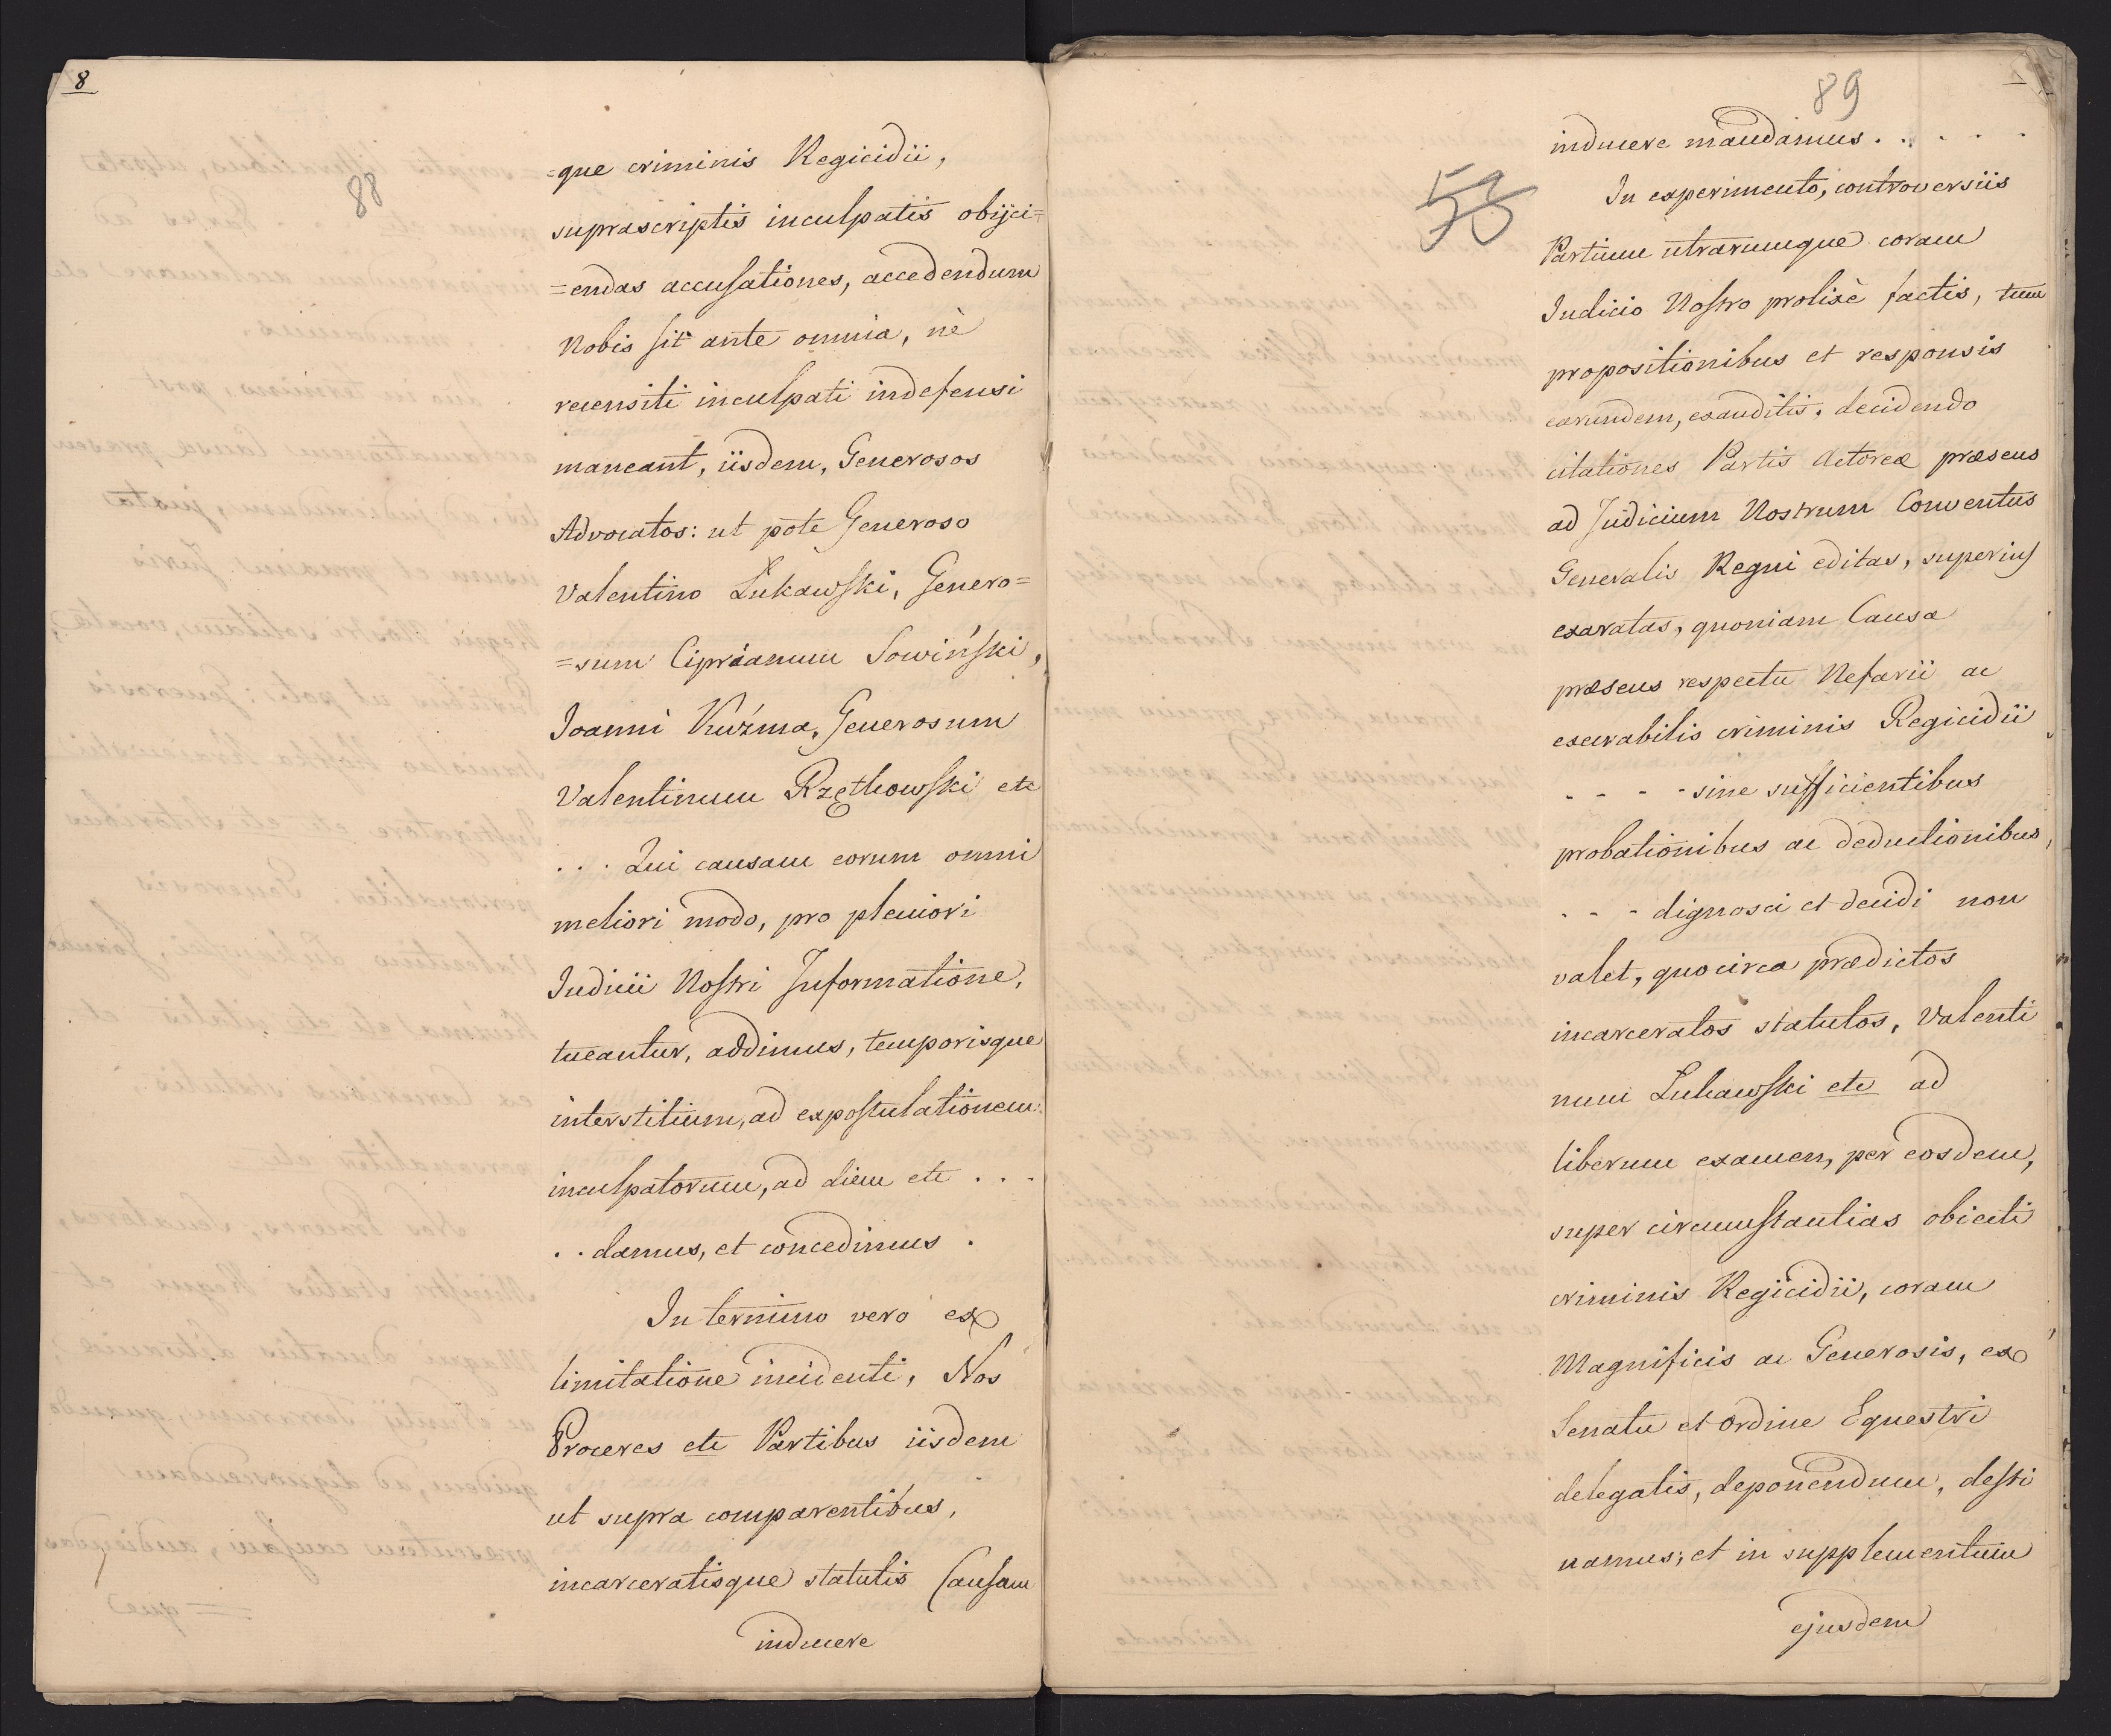 8
88
=que criminis Regicidii,
suprascriptis inculpatis obijci=
=endas accusationes, accedendum
Nobis sit ante omnia, nè
recensiti inculpati indefensi
maneant, iisdem, Generosos
Advocatos: ut pote Generoso
Valentino Łukawski, Genero=
=sum Ciprianum Sowiński,
Joanni Kuźma, Generosum
Valentinum Rzętkowski etc
. . . Qui causam eorum omni
meliori modo, pro pleniori
Judicii Nostri Informatione,
tueantur, addimus, temporisque
interstitium, ad expostulationem
inculpatorum, ad diem etc . . .
. . damus, et concedimus .
In termino vero ex
limitatione incidenti, Nos
Proceres etc Partibus iisdem
ut supra comparentibus,
incarceratisque statutis Causam
inducere
89
53
inducere mandamus . . . . .
In experimento, controversiis
Partium utrarumque coram
Judicio Nostro prolixè factis, tum
propositionibus et responsis
earundem, exauditis, decidendo
citationes Partis Actoreæ præsens
ad Judicium Nostrum Conventus
Generalis Regni editas, superius
exaratas, quoniam Causa
præsens respectu Nefarii ac
execrabilis criminis Regicidii
- - - - sine sufficientibus
probationibus ac deductionibus,
- - - dignosci et decidi non
valet, quocirca prædictos
incarceratos statutos, Valenti
num Łukawski etc ad
liberum examen, per eosdem,
super circumstantias obiecti
criminis Regicidii, coram
Magnificis ac Generosis, ex
Senatu et Ordine Equestri
delegatis, deponendum, desti
namus; et in supplementum
ejusdem